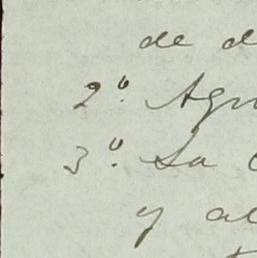 de d
2º. Agr
3º. La
y al